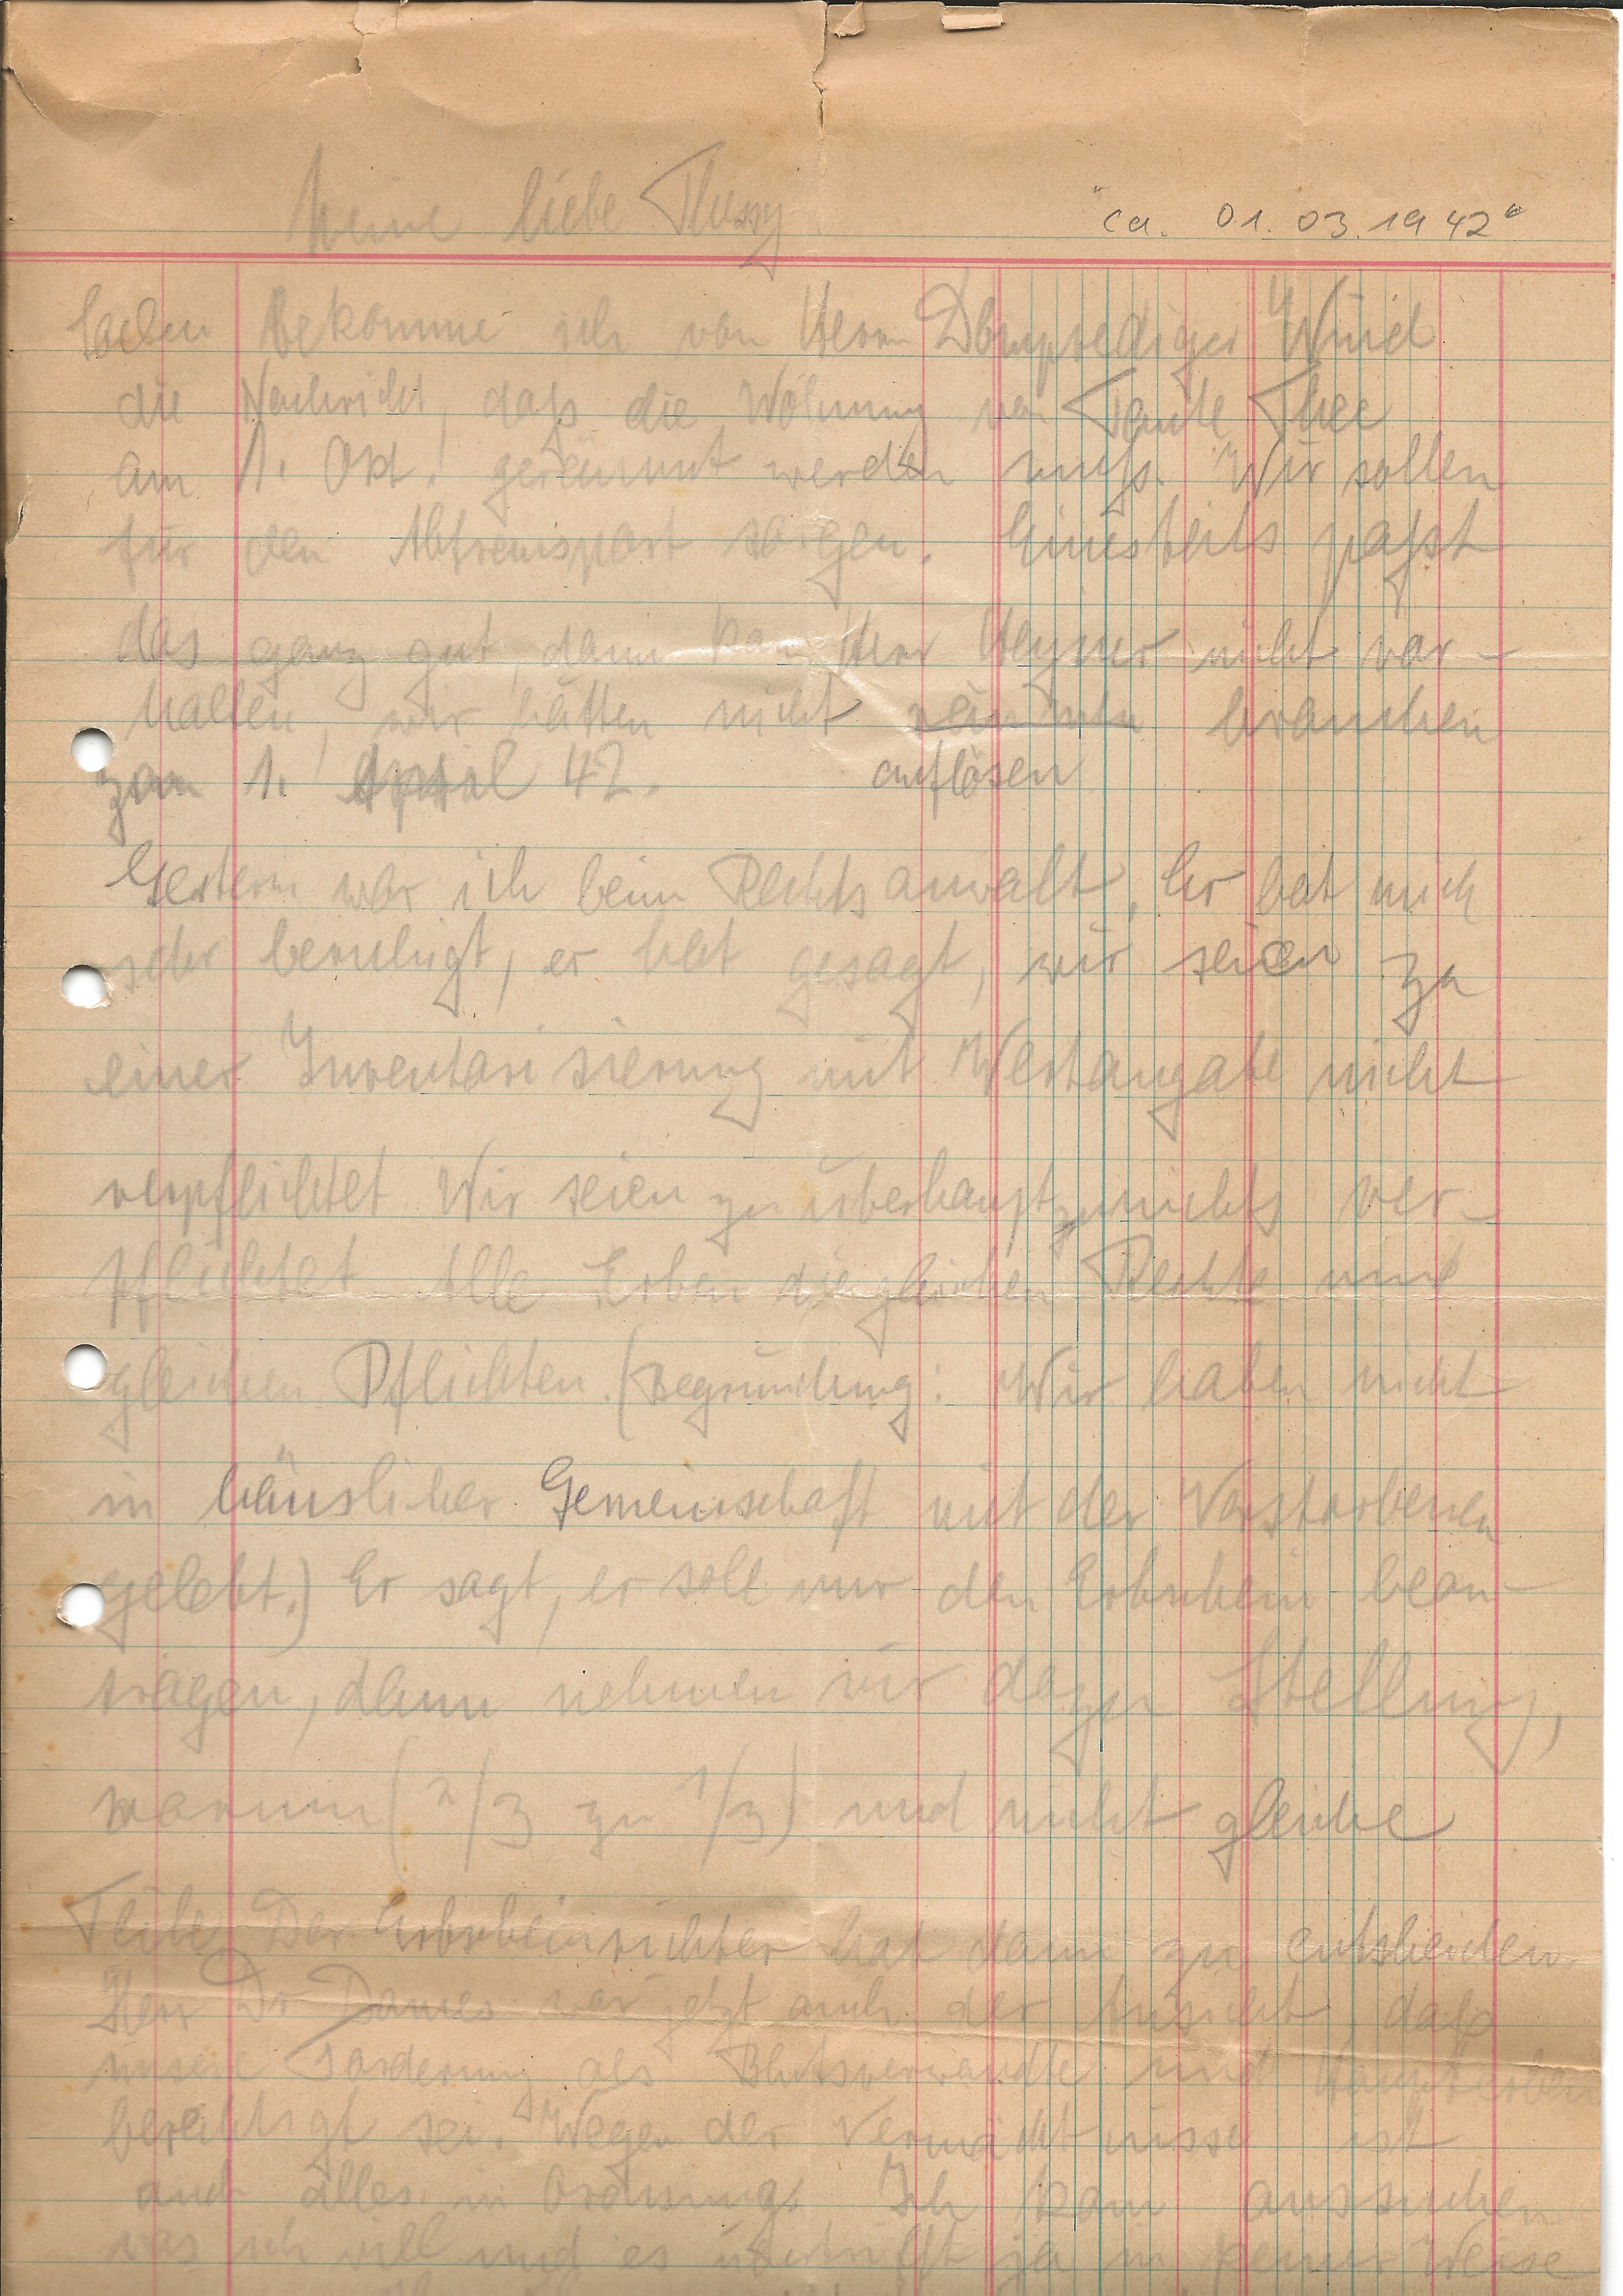 Meine liebe Thussy
"ca. 01.03.1942"
Soeben bekomme ich von Herrn Domprediger Wind
die Nachricht, daß die Wohnung von Tante Thee
am 1. Okt. geräumt werden muß. Wir sollen
für den Abtransport sorgen. Einesteils paßt
das ganz gut, dann kann Herr Heyner nicht vor-
halten, wir hätten nicht räumen brauchen
auflösen
zum 1. April 42.
Gestern war ich beim Rechtsanwalt, Er hat mich
sehr beruhigt, er hat gesagt, wir seien zu
einer Inventarisierung mit Wertangabe nicht
verpflichtet Wir seien zu überhaupt zu nichts ver-
pflichtet Alle Erben die gleichen Rechte und
gleichen Pflichten. (Begründung: Wir haben nicht
in häuslicher Gemeinschaft mit der Verstorbenen
gelebt.) Er sagt, er soll nur den Erbschein bean-
tragen, dann nehmen wir dazu Stellung,
warum (2/3 zu 1/3) und nicht gleiche
Teile Der Erbscheinrichter hat dann zu entscheiden.
Herr Dr Dames war jetzt auch der Ansicht, daß
unsere Forderung als Blutsverwandte und Haupterben
berechtigt sei. Wegen der Vermächtnisse ist
auch alles in Ordnung. Ich kann aussuchen
was ich will und es übertrifft ja in keiner Weise